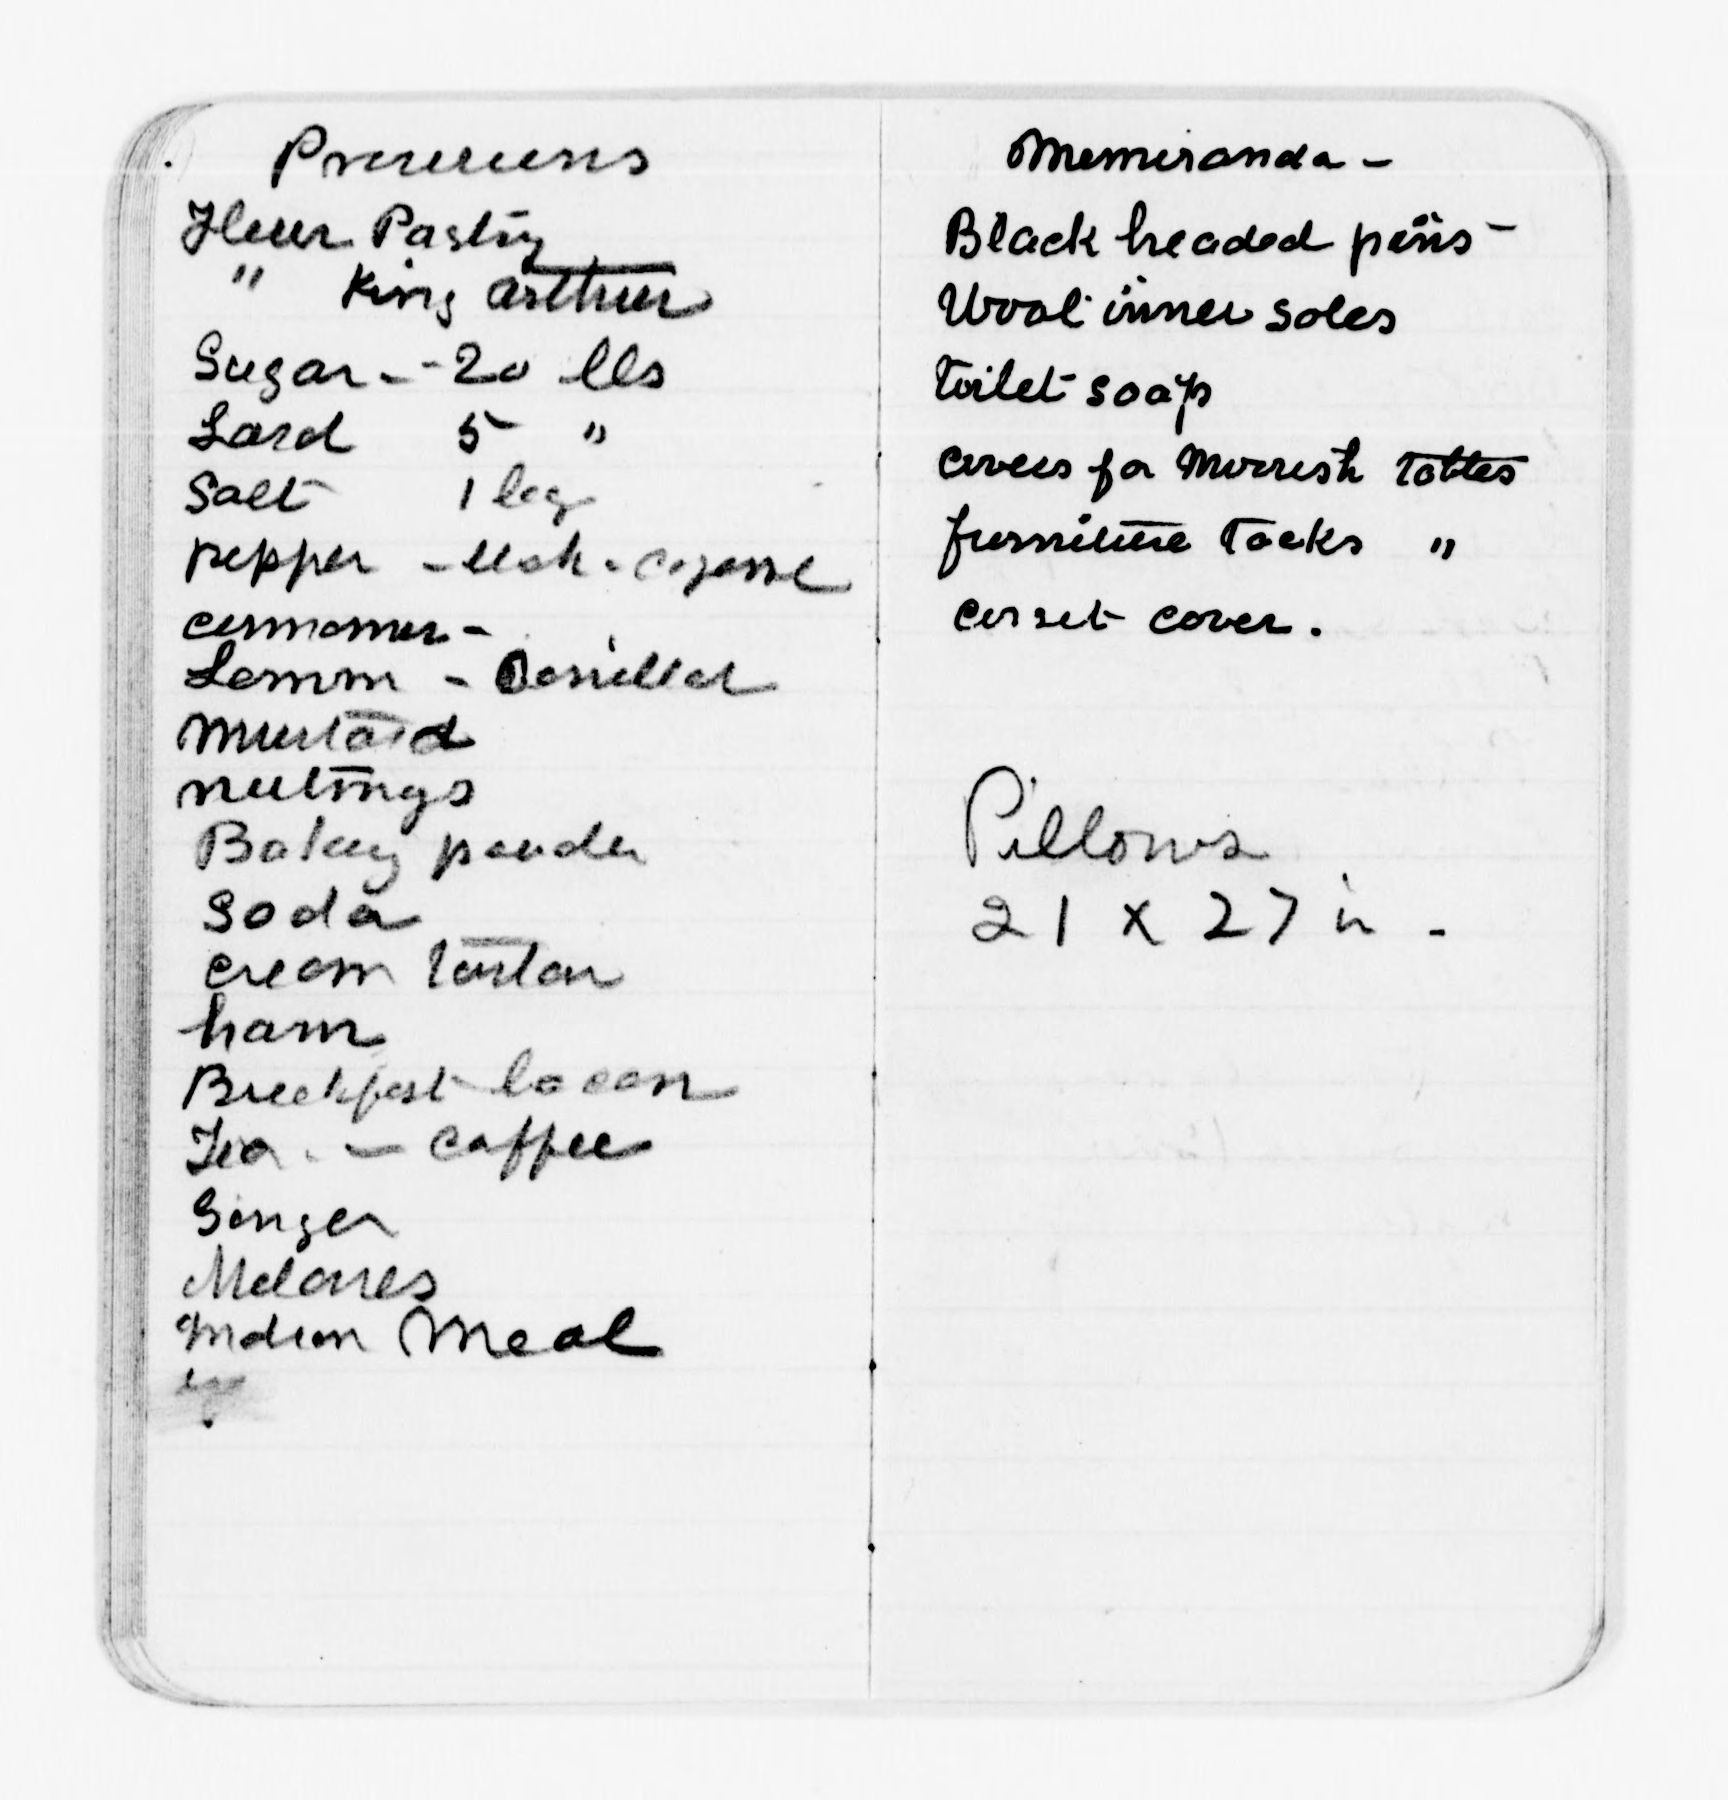 Provisions
Flour Pastry
" King Arthur
Sugar - - 20 lbs
Lard 5 "
Salt 1 bag
pepper - blak - cayenne
cinnamon -
Lemon - Vanilla
Mustard
nutmegs
Baking powder
Soda
cream tartar
ham
Breakfast bacon
Tea - coffee
Ginger
Molasses
Indian Meal
Memoranda -
Black headed pins -
Wool inner soles
Toilet soap
covers for Moorish Tables
furniture Tacks "
corset cover.
Pillows
21 x 27 in -